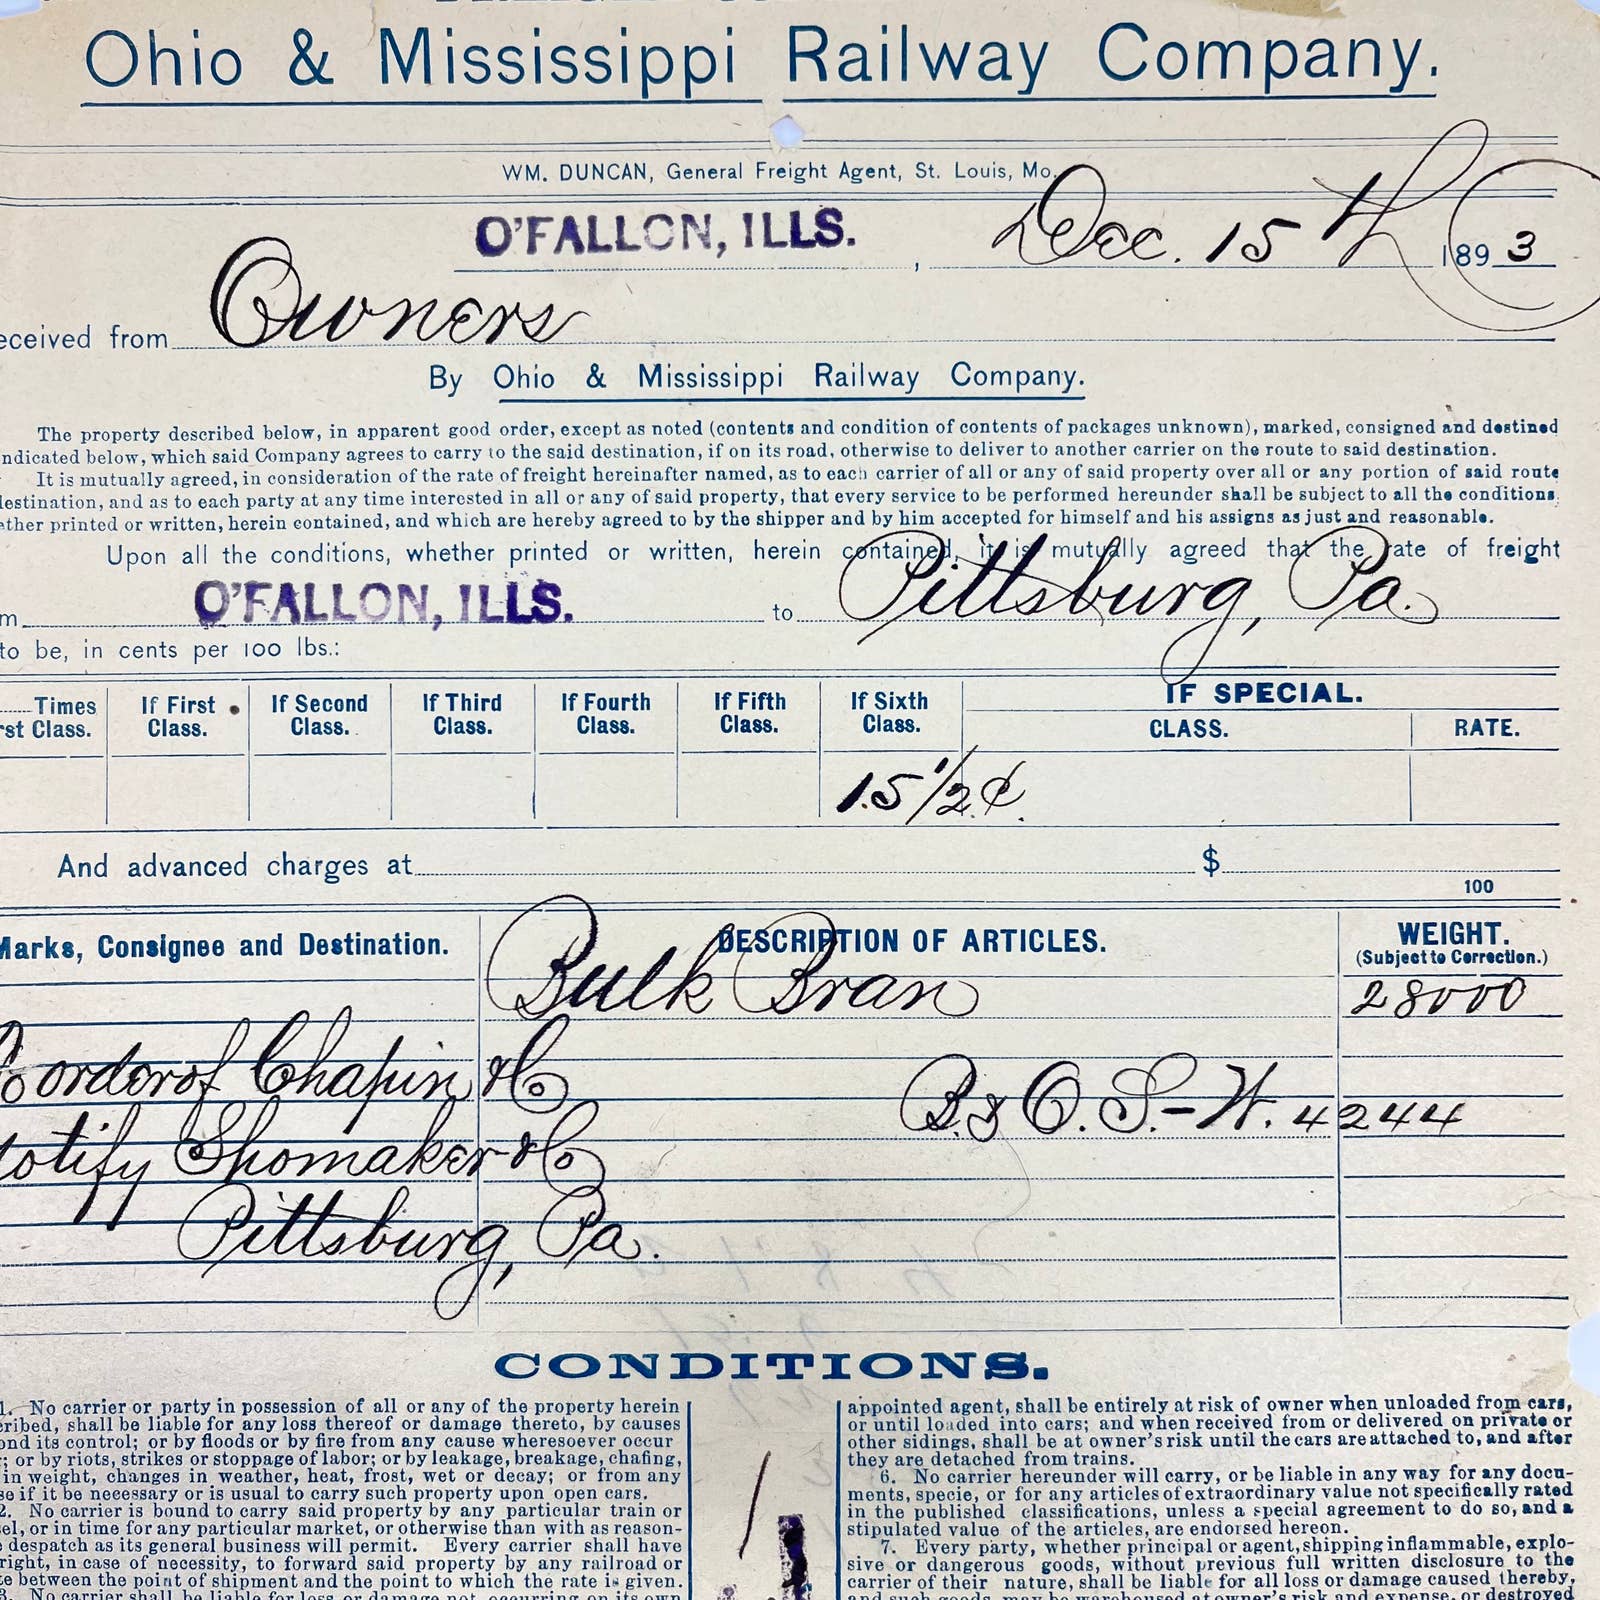 Ohio & Mississippi Railway Company.
WM. DUNCAN, General Freight Agent, St. Louis, Mo.
O'FALLON, ILLS. , Dec. 15th 1893
eceived from Owners
By Ohio & Mississippi Railway Company.
The property described below, in apparent good order, except as noted (contents and condition of contents of packages unknown), marked, consigned and destined
ndicated below, which said Company agrees to carry to the said destination, if on its road, otherwise to deliver to another carrier on the route to said destination.
It is mutually agreed, in consideration of the rate of freight hereinafter named, as to each carrier of all or any of said property over all or any portion of said route
destination, and as to each party at any time interested in all or any of said property, that every service to be performed hereunder shall be subject to all the conditions,
ether printed or written, herein contained, and which are hereby agreed to by the shipper and by him accepted for himself and his assigns as just and reasonable.
Upon all the conditions, whether printed or written, herein contained, it is mutually agreed that the rate of freight
m O'FALLON, ILLS. to Pittsburg, Pa.
to be, in cents per 100 lbs.:
Times If First If Second If Third If Fourth If Fifth If Sixth IF SPECIAL.
rst Class. Class. Class. Class. Class. Class. Class. CLASS. RATE.
15 1/2 ¢.
And advanced charges at $
100
Marks, Consignee and Destination. DESCRIPTION OF ARTICLES. WEIGHT.
(Subject to Correction.)
Bulk Bran 28000
order of Chapin & Co
B. & O. S.-W. 4244
otify Shomaker & Co
Pittsburg, Pa.
CONDITIONS.
1. No carrier or party in possession of all or any of the property herein
cribed, shall be liable for any loss thereof or damage thereto, by causes
ond its control; or by floods or by fire from any cause wheresoever occur
; or by riots, strikes or stoppage of labor; or by leakage, breakage, chafing,
in weight, changes in weather, heat, frost, wet or decay; or from any
se if it be necessary or is usual to carry such property upon open cars.
2. No carrier is bound to carry said property by any particular train or
sel, or in time for any particular market, or otherwise than with as reason-
despatch as its general business will permit. Every carrier shall have
right, in case of necessity, to forward said property by any railroad or
te between the point of shipment and the point to which the rate is given.
3. No carrier shall be liable for loss or damage not occurring on its own
appointed agent, shall be entirely at risk of owner when unloaded from cars,
or until loaded into cars; and when received from or delivered on private or
other sidings, shall be at owner's risk until the cars are attached to, and after
they are detached from trains.
6. No carrier hereunder will carry, or be liable in any way for any docu-
ments, specie, or for any articles of extraordinary value not specifically rated
in the published classifications, unless a special agreement to do so, and a
stipulated value of the articles, are endorsed hereon.
7. Every party, whether principal or agent, shipping inflammable, explo-
sive or dangerous goods, without previous full written disclosure to the
carrier of their nature, shall be liable for all loss or damage caused thereby,
and such goods may be warehoused at owner's risk and expense, or destroyed